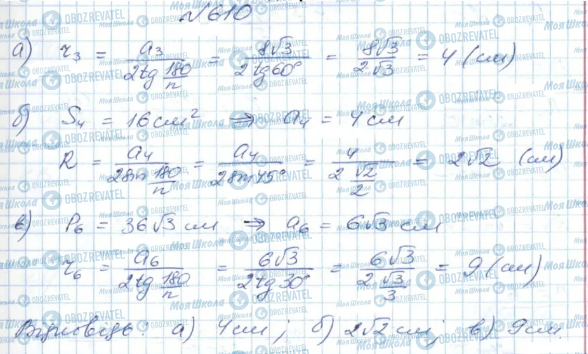 №610
а) r₃ = a₃ / (2tg 180/n) = 8√3 / (2tg60°) = 8√3 / (2√3) = 4 (см)
б) S₄ = 16 см² ⇒ a₄ = 4 см
R = a₄ / (2sin 180/n) = a₄ / (2sin45°) = 4 / (2 √2/2) = 2√2 (см)
в) P₆ = 36√3 см ⇒ a₆ = 6√3 см
r₆ = a₆ / (2tg 180/n) = 6√3 / (2tg30°) = 6√3 / (2 √3/3) = 9 (см)
Відповідь: а) 4 см; б) 2√2 см; в) 9 см.